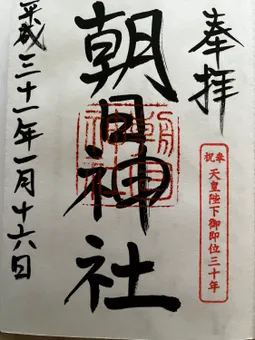 奉拝
奉祝 天皇陛下御即位三十年
朝日神社
平成三十一年一月十六日